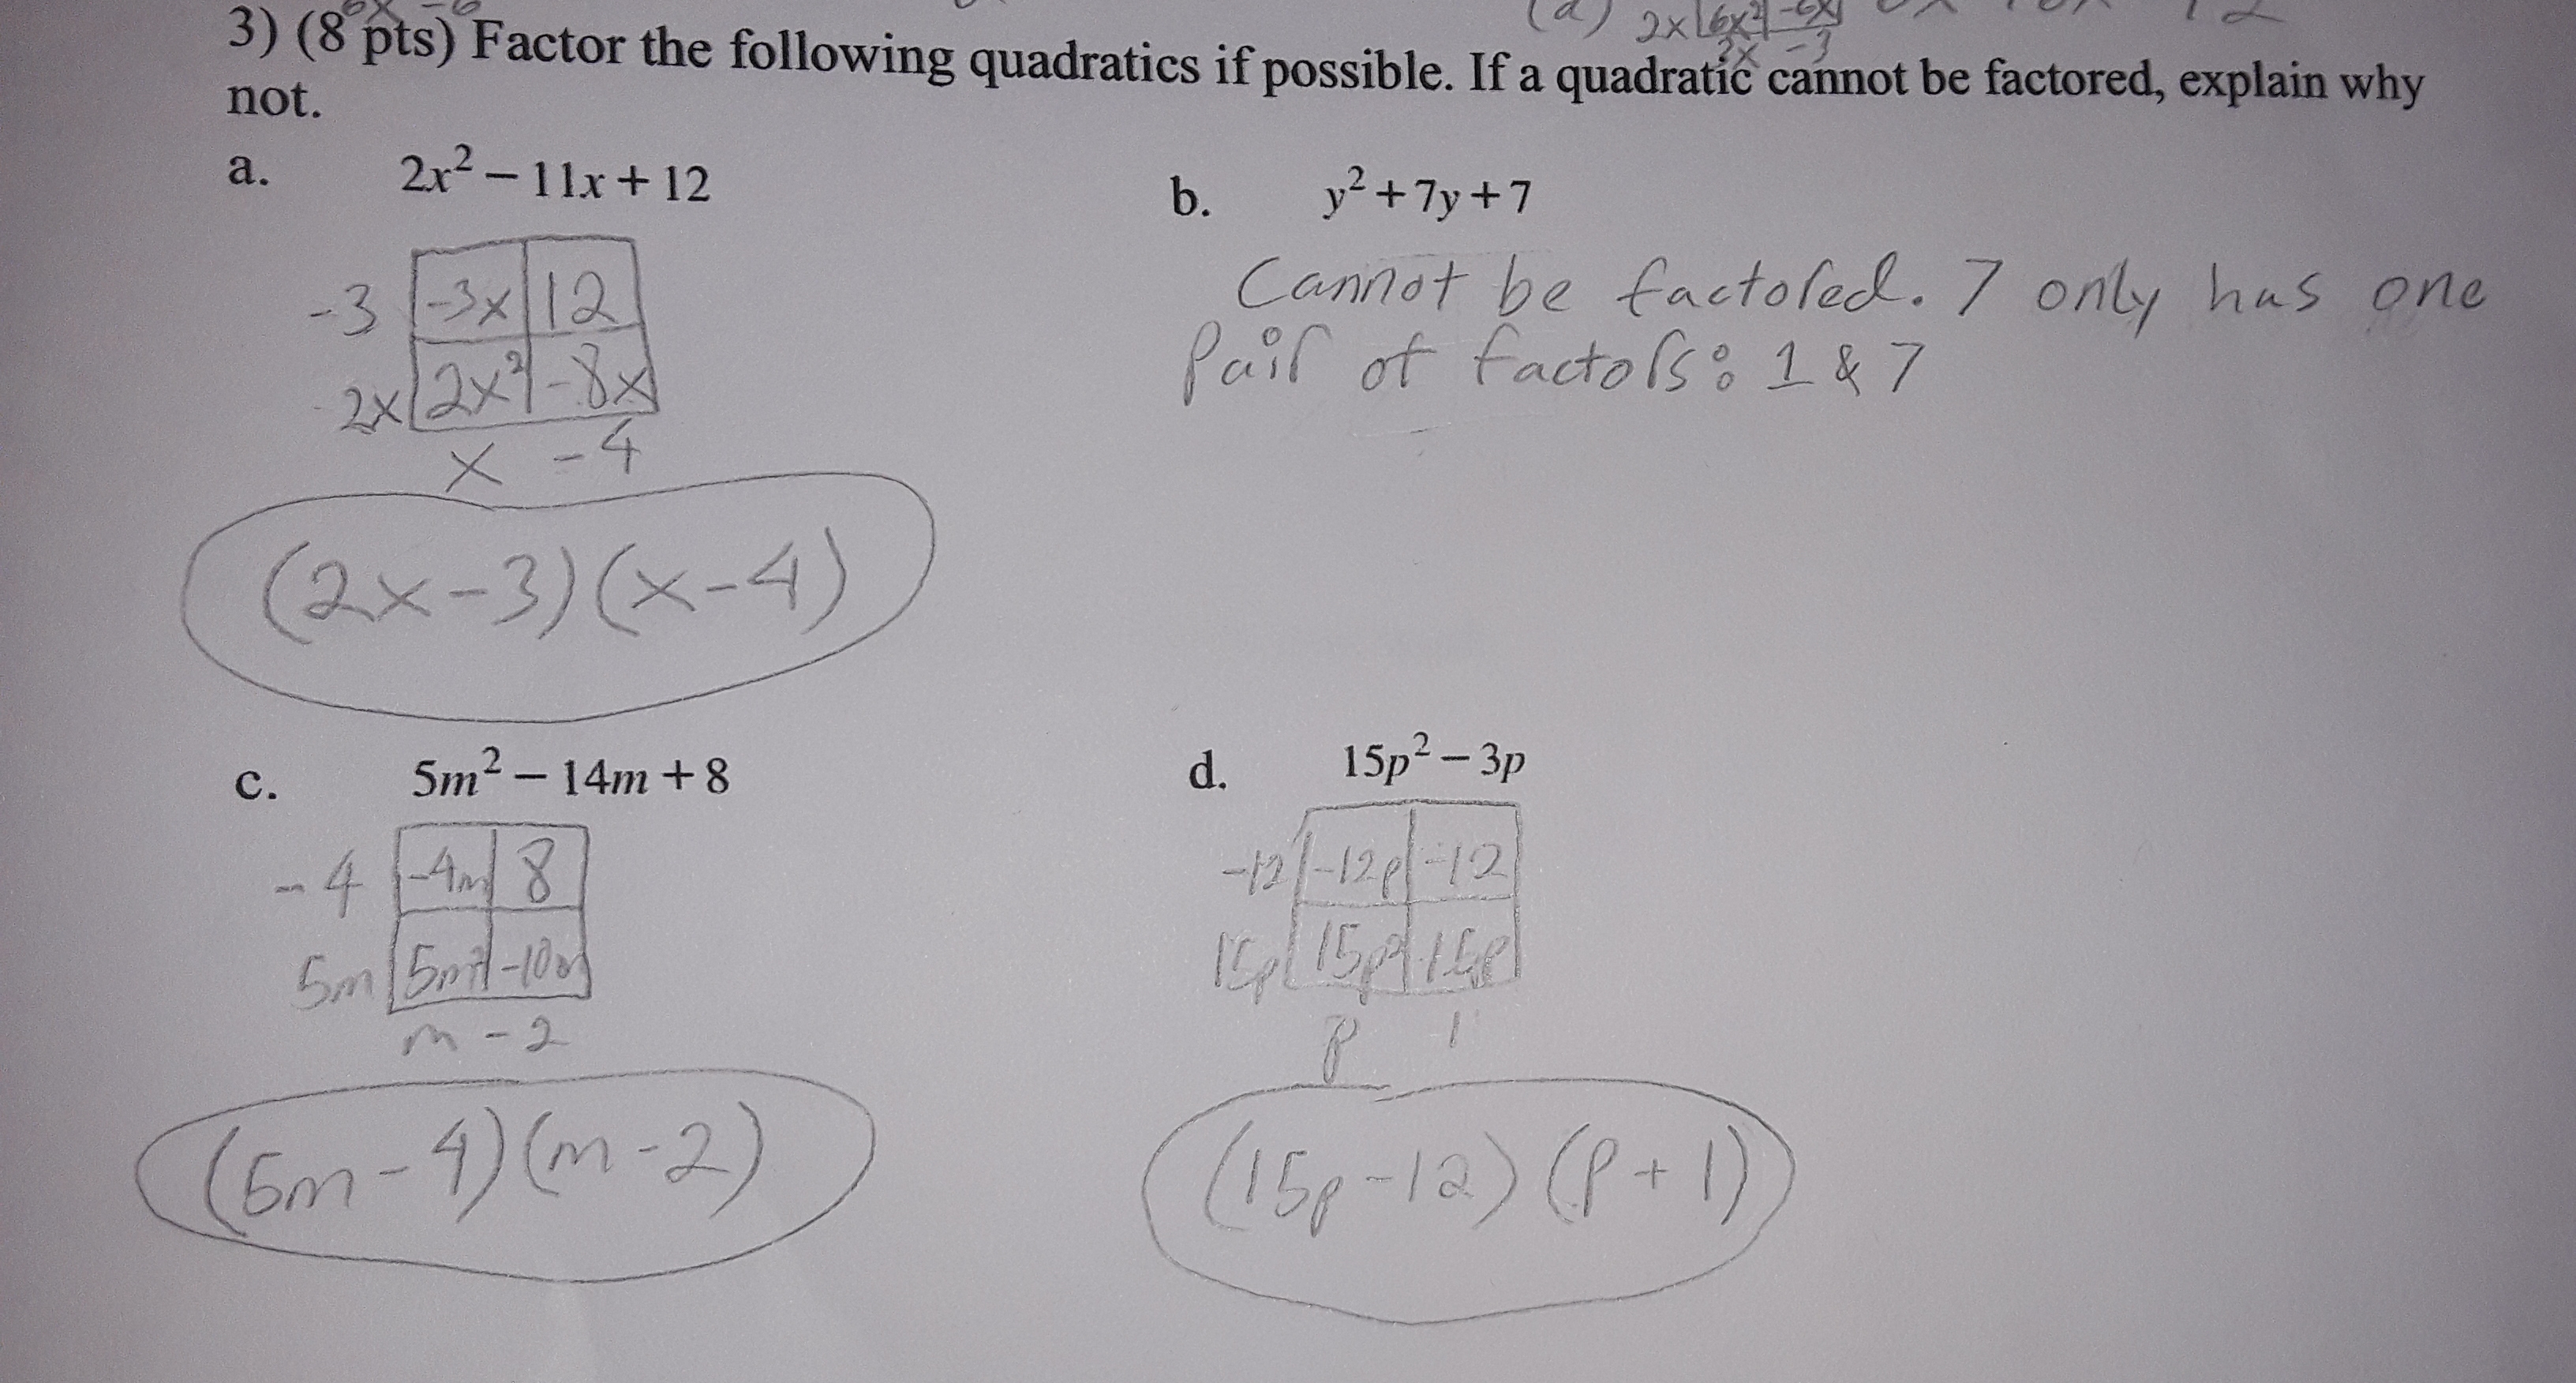 3) (8 pts) Factor the following quadratics if possible. If a quadratic cannot be factored, explain why
not.
a. 2x² – 11x + 12
b. y² + 7y + 7
-3 -3x 12
2x 2x² -8x
x -4
(2x-3)(x-4)
Cannot be factored. 7 only has one
pair of factors: 1 & 7
c. 5m² – 14m + 8
d. 15p² – 3p
-4 -4m 8
5m 5m² -10m
m -2
(5m-4)(m-2)
-12 -12p -12
15p 15p² 15p
p 1
(15p-12)(p+1)